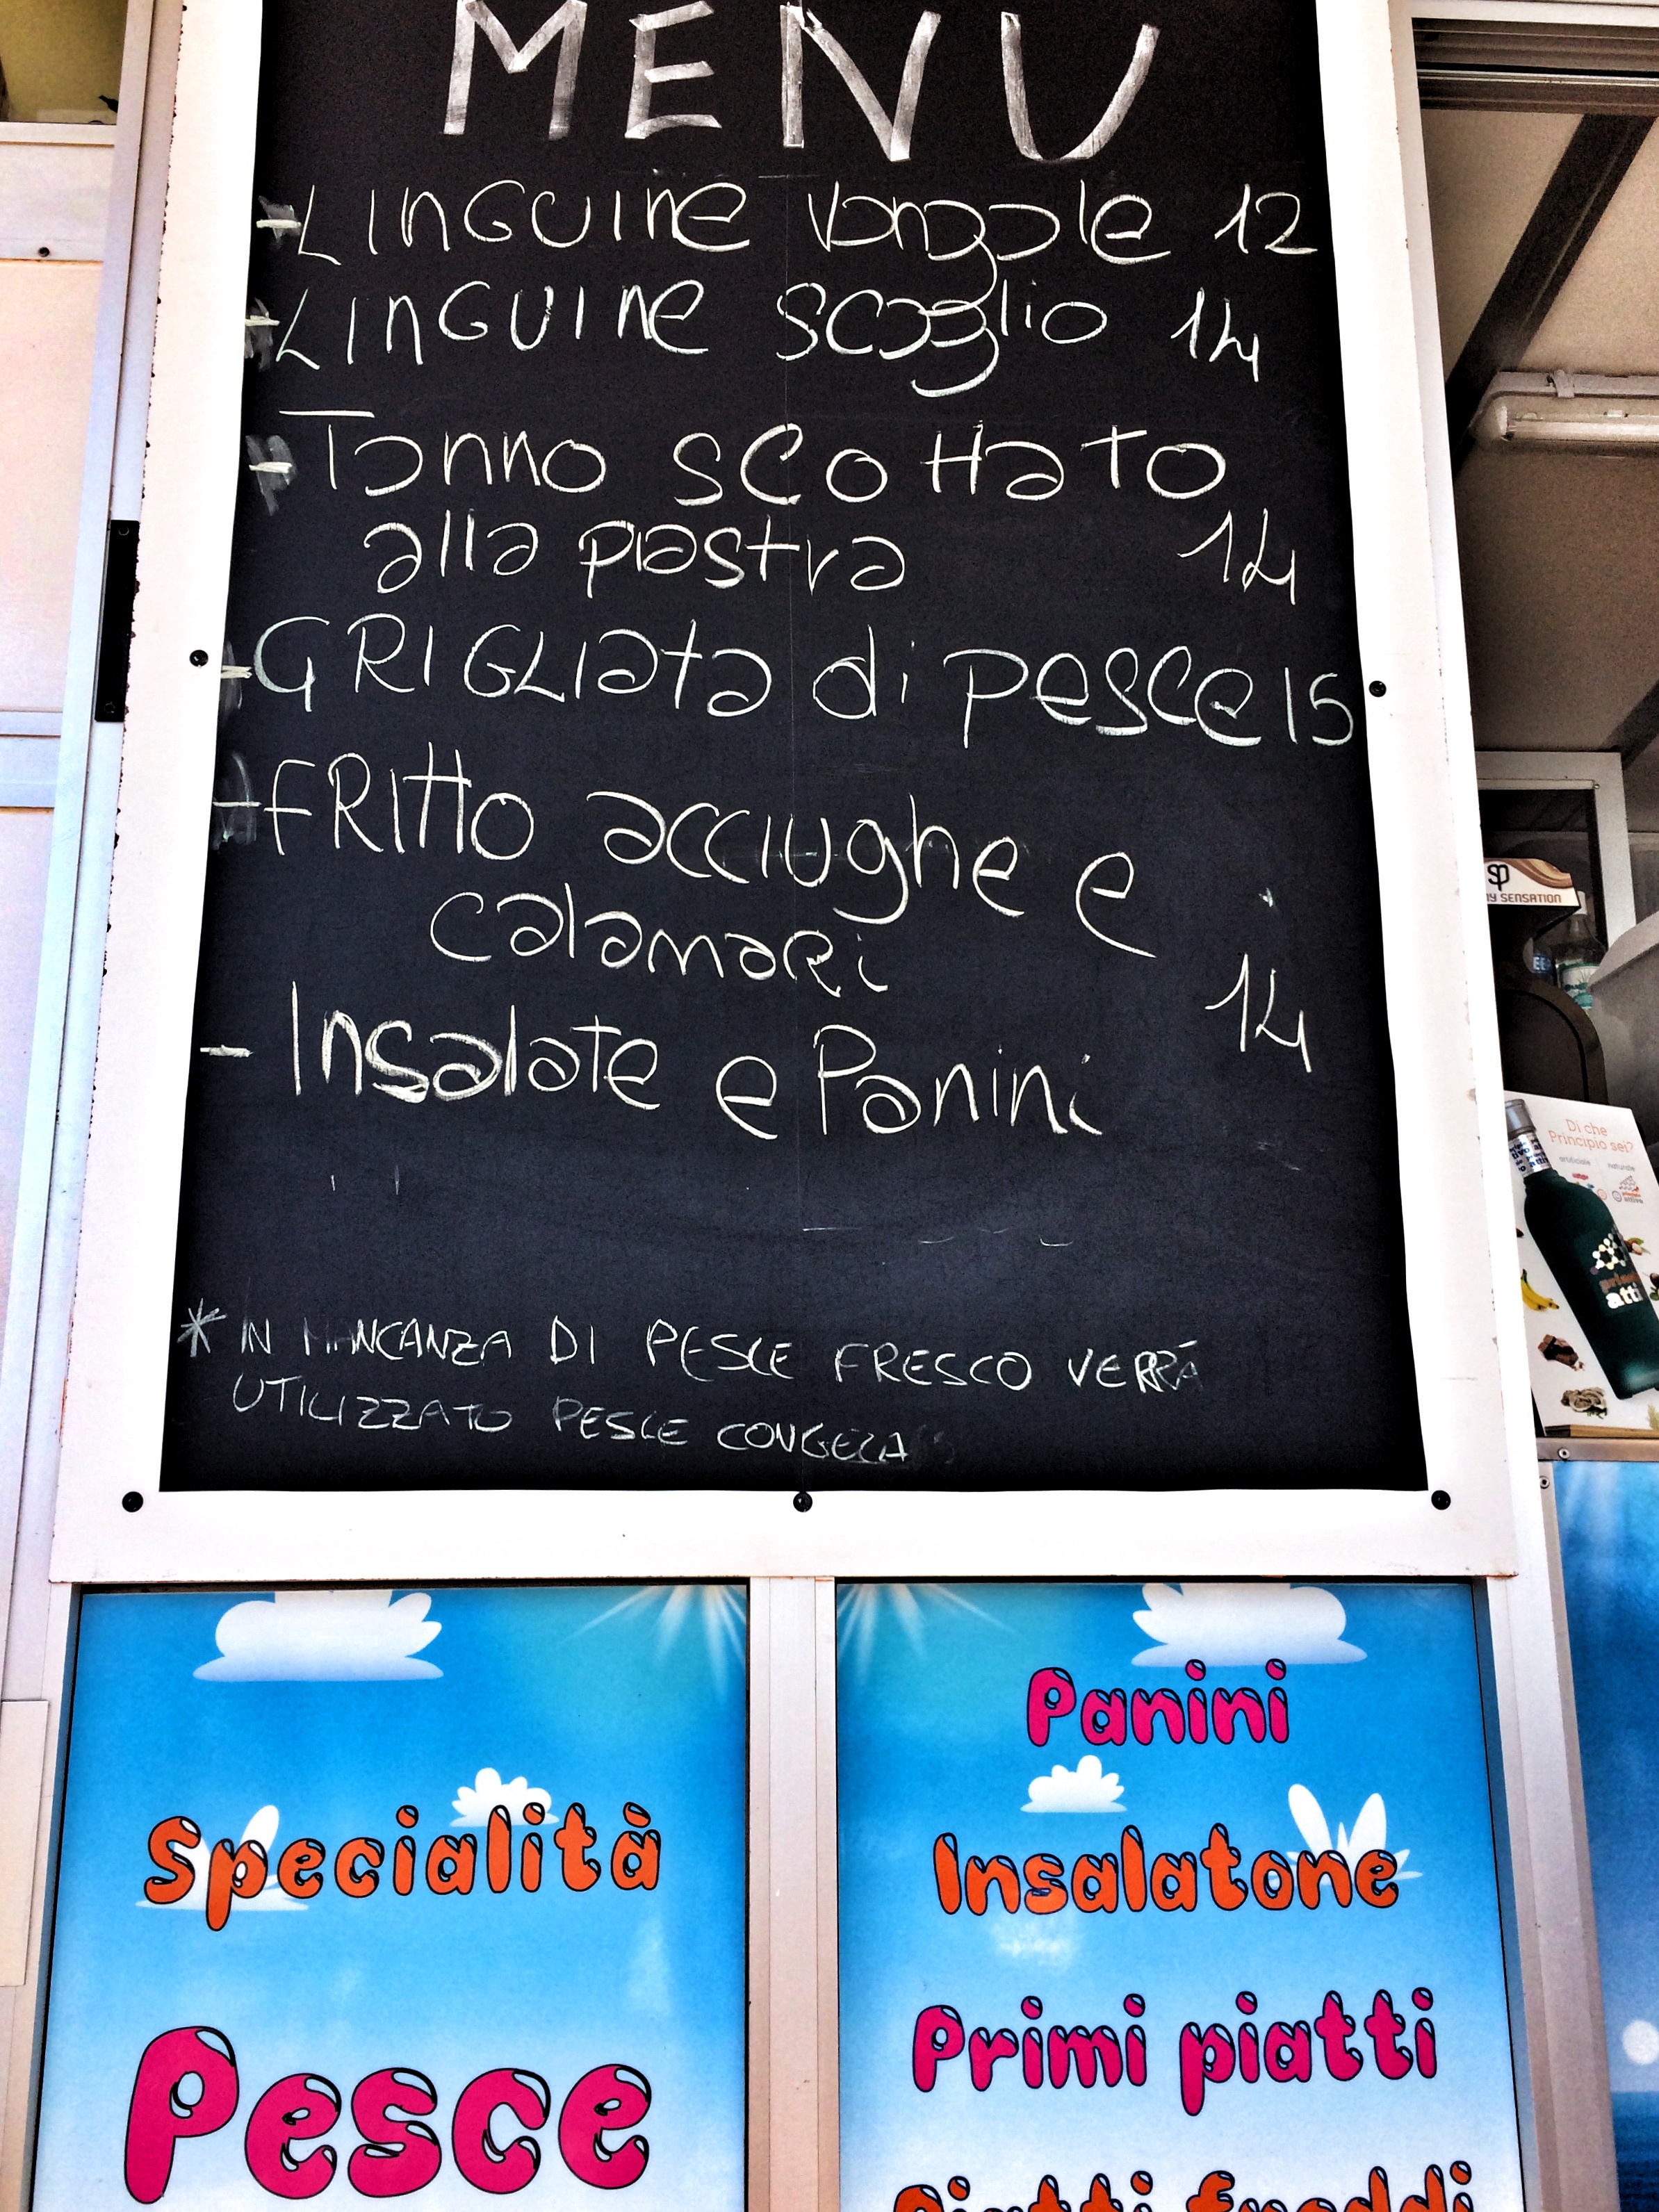 MENU
- LINGUINE VONGOLE 12
- LINGUINE SCOGLIO 14
- Tonno SCOTTATO
alla piastra 14
- GRIGLIATA di PESCE 15
- FRITTO acciughe e
calamari
14
- Insalate e Panini
* IN MANCANZA DI PESCE FRESCO VERRÀ
UTILIZZATO PESCE
Specialità
Pesce
Panini
Insalatone
Primi piatti
Piatti freddi
SP
MY SENSATION
Di che
Principio sei?
artificiale naturale